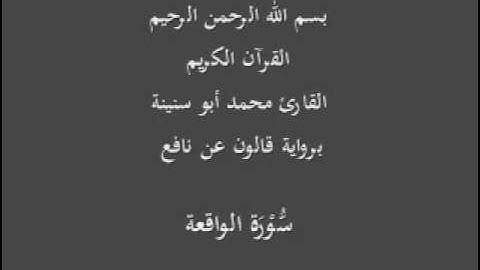 بسم الله الرحمن الرحيم
القرآن الكريم
القارئ محمد أبو سنينة
برواية قالون عن نافع
سُّوْرَة الواقعة